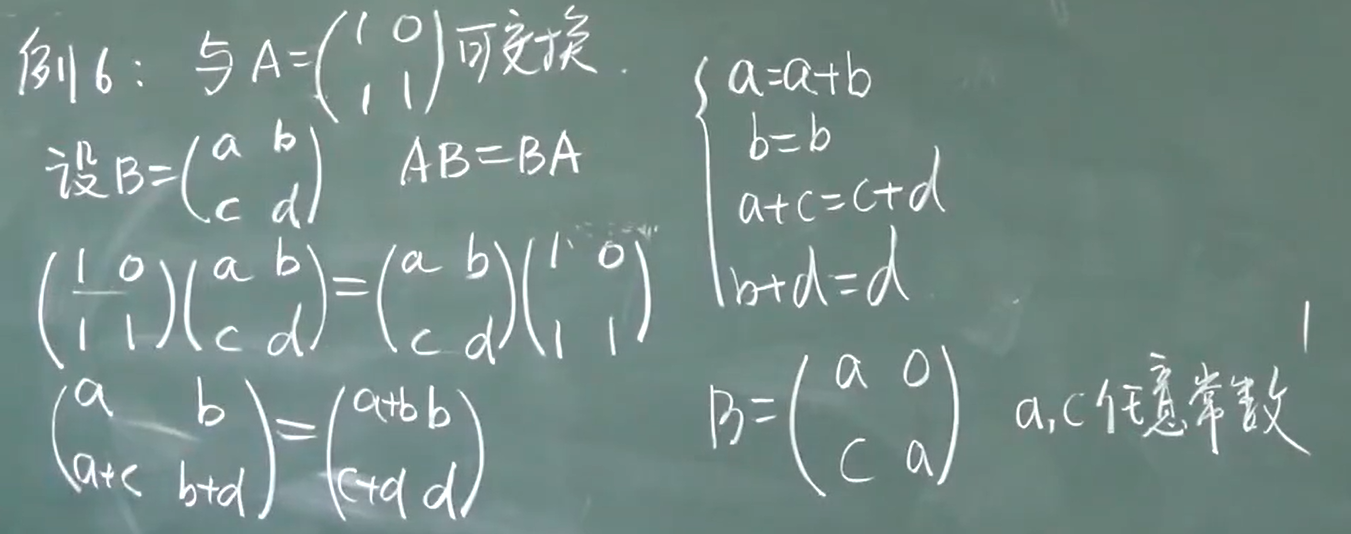 例6: 与A=(1 0; 1 1)可交换.
设B=(a b; c d) AB=BA
(1 0; 1 1)(a b; c d)=(a b; c d)(1 0; 1 1)
(a b; a+c b+d)=(a+b b; c+d d)
{a=a+b
b=b
a+c=c+d
b+d=d
B=(a 0; c a) a,c任意常数